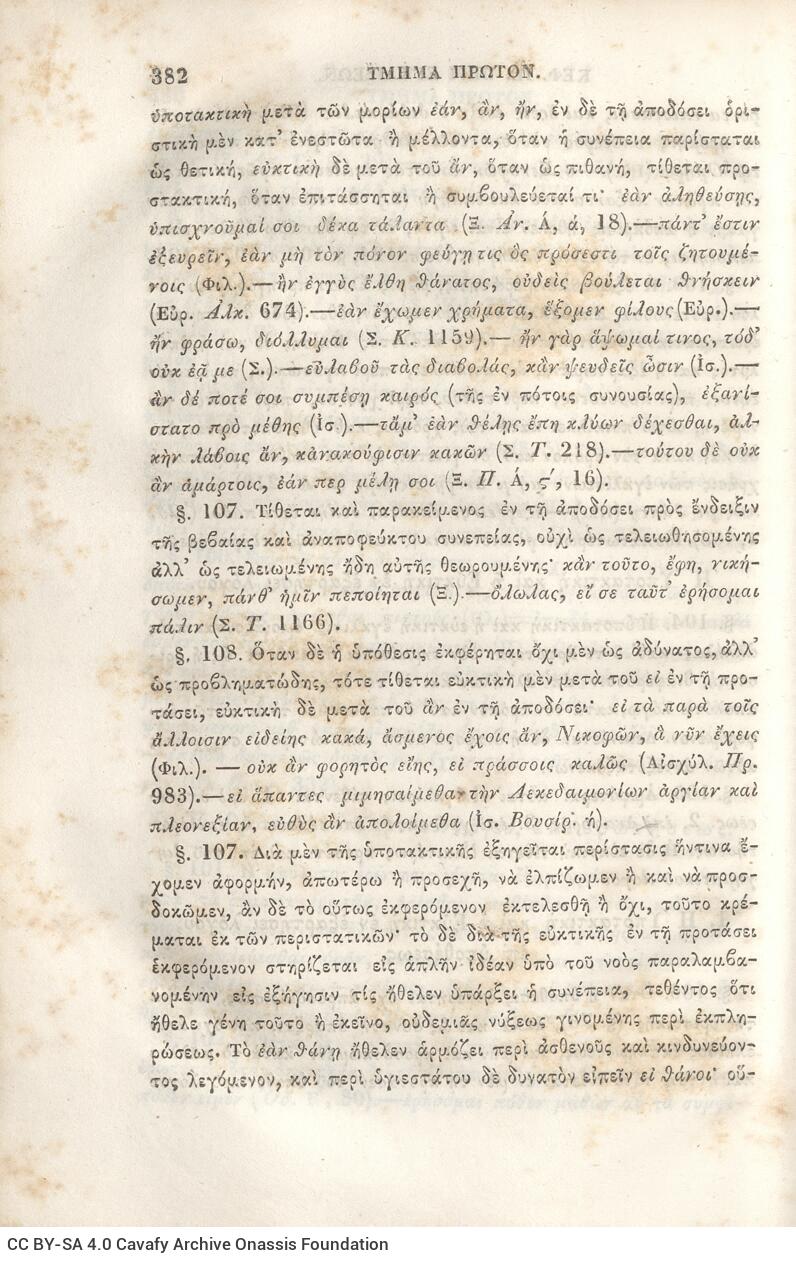 382
ΤΜΗΜΑ ΠΡΩΤΟΝ.
ὑποτακτικὴ μετὰ τῶν μορίων ἐάν, ἄν, ἤν, ἐν δὲ τῇ ἀποδόσει ὁρι-
στικὴ μὲν κατ' ἐνεστῶτα ἢ μέλλοντα, ὅταν ἡ συνέπεια παρίσταται
ὡς θετική, εὐκτικὴ δὲ μετὰ τοῦ ἄν, ὅταν ὡς πιθανή, τίθεται προ-
στακτική, ὅταν ἐπιτάσσηται ἢ συμβουλεύεταί τι· ἐὰν ἀληθεύσῃς,
ὑπισχνοῦμαί σοι δέκα τάλαντα (Ξ. Ἀν. Ά, ά, 18).—πάντ' ἔστιν
ἐξευρεῖν, ἐὰν μὴ τὸν πόνον φεύγῃ τις ὃς πρόσεστι τοῖς ζητουμέ-
νοις (Φιλ.).—ἢν ἐγγὺς ἔλθῃ θάνατος, οὐδεὶς βούλεται θνήσκειν
(Εὐρ. Ἀλκ. 674).—ἐὰν ἔχωμεν χρήματα, ἕξομεν φίλους (Εὐρ.).—
ἢν φράσω, διόλλυμαι (Σ. Κ. 1159).— ἢν γὰρ ἅψωμαί τινος, τόδ'
οὐκ ἐᾷ με (Σ.).—εὐλαβοῦ τὰς διαβολάς, κἂν ψευδεῖς ὦσιν (Ἰσ.).—
ἂν δέ ποτέ σοι συμπέσῃ καιρός (τῆς ἐν πότοις συνουσίας), ἐξανί-
στατο πρὸ μέθης (Ἰσ.).—τἄμ' ἐὰν θέλῃς ἔπη κλύων δέχεσθαι, ἀλ-
κὴν λάβοις ἄν, κἀνακούφισιν κακῶν (Σ. Τ. 218).—τούτου δὲ οὐκ
ἂν ἁμάρτοις, ἐάν περ μέλῃ σοι (Ξ. Π. Ά, ϛ', 16).
§. 107. Τίθεται καὶ παρακείμενος ἐν τῇ ἀποδόσει πρὸς ἔνδειξιν
τῆς βεβαίας καὶ ἀναποφεύκτου συνεπείας, οὐχὶ ὡς τελειωθησομένης
ἀλλ' ὡς τελειωμένης ἤδη αὐτῆς θεωρουμένης· κἂν τοῦτο, ἔφη, νική-
σωμεν, πάνθ' ἡμῖν πεποίηται (Ξ.).—ὄλωλας, εἴ σε ταῦτ' ἐρήσομαι
πάλιν (Σ. Τ. 1166).
§. 108. Ὅταν δὲ ἡ ὑπόθεσις ἐκφέρηται ὄχι μὲν ὡς ἀδύνατος, ἀλλ'
ὡς προβληματώδης, τότε τίθεται εὐκτικὴ μὲν μετὰ τοῦ εἰ ἐν τῇ προ-
τάσει, εὐκτικὴ δὲ μετὰ τοῦ ἂν ἐν τῇ ἀποδόσει· εἰ τὰ παρὰ τοῖς
ἄλλοισιν εἰδείης κακά, ἄσμενος ἔχοις ἄν, Νικοφῶν, ἃ νῦν ἔχεις
(Φιλ.). — οὐκ ἂν φορητὸς εἴης, εἰ πράσσοις καλῶς (Αἰσχύλ. Πρ.
983).—εἰ ἅπαντες μιμησαίμεθα τὴν Λακεδαιμονίων ἀργίαν καὶ
πλεονεξίαν, εὐθὺς ἂν ἀπολοίμεθα (Ἰσ. Βουσίρ. ή).
§. 107. Διὰ μὲν τῆς ὑποτακτικῆς ἐξηγεῖται περίστασις ἥντινα ἔ-
χομεν ἀφορμήν, ἀπωτέρω ἢ προσεχῆ, νὰ ἐλπίζωμεν ἢ καὶ νὰ προσ-
δοκῶμεν, ἂν δὲ τὸ οὕτως ἐκφερόμενον ἐκτελεσθῇ ἢ ὄχι, τοῦτο κρέ-
μαται ἐκ τῶν περιστατικῶν· τὸ δὲ διὰ τῆς εὐκτικῆς ἐν τῇ προτάσει
ἐκφερόμενον στηρίζεται εἰς ἁπλῆν ἰδέαν ὑπὸ τοῦ νοὸς παραλαμβα-
νομένην εἰς ἐξήγησιν τίς ἤθελεν ὑπάρξει ἡ συνέπεια, τεθέντος ὅτι
ἤθελε γένῃ τοῦτο ἢ ἐκεῖνο, οὐδεμιᾶς νύξεως γινομένης περὶ ἐκπλη-
ρώσεως. Τὸ ἐὰν θάνῃ ἤθελεν ἁρμόζει περὶ ἀσθενοῦς καὶ κινδυνεύον-
τος λεγόμενον, καὶ περὶ ὑγιεστάτου δὲ δυνατὸν εἰπεῖν εἰ θάνοι· οὕ-
CC BY-SA 4.0 Cavafy Archive Onassis Foundation